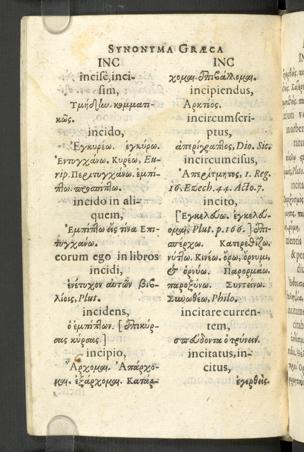 SYNONYMA GRÆCA
INC
incisè, inci-
sim,
Τμήδην. κομματι-
κῶς.
incido,
Ἐγκυρέω. ἐγκύρω.
Ἐντυγχάνω. Κυρέω, Eu-
rip. Περιτυγχάνω. ἐμπί-
πλω.
incido in ali-
quem,
Ἐμπίπλω εἴς τινα Ἐπι-
τυγχάνω.
eorum ego in libros
incidi,
ἐνέτυχον αὐτῶν βιβ-
λίοις, Plut.
incidens,
ὁ ἐμπίπλων. [ἐπικύρ-
σας κύρσας]
incipio,
Ἄρχομαι. Ἀπάρχο-
μαι. ἐξάρχομαι. Καταρ-
INC
χομαι. ἐπιβάλλομαι.
incipiendus,
Ἀρκτέος.
incircumscri-
ptus,
ἀπερίγραπτος, Dio. Sic.
incircumcisus,
Ἀπερίτμητος, 1. Reg.
16. Ezech. 44. Acto. 7.
incito,
[Ἐγκελεύω. ἐγκελεύ-
ομαι, Plut. p. 166.]
Κατερεθίζω.
Κινέω. ὄρω, ὄρνυμι,
& ὀρνύω. Παρορμάω.
παροξύνω. Συντείνω.
Philo.
incitare curren-
tem,
σπεύδοντα ὀτρύνειν.
incitatus, in-
citus,
ἐγερθείς.